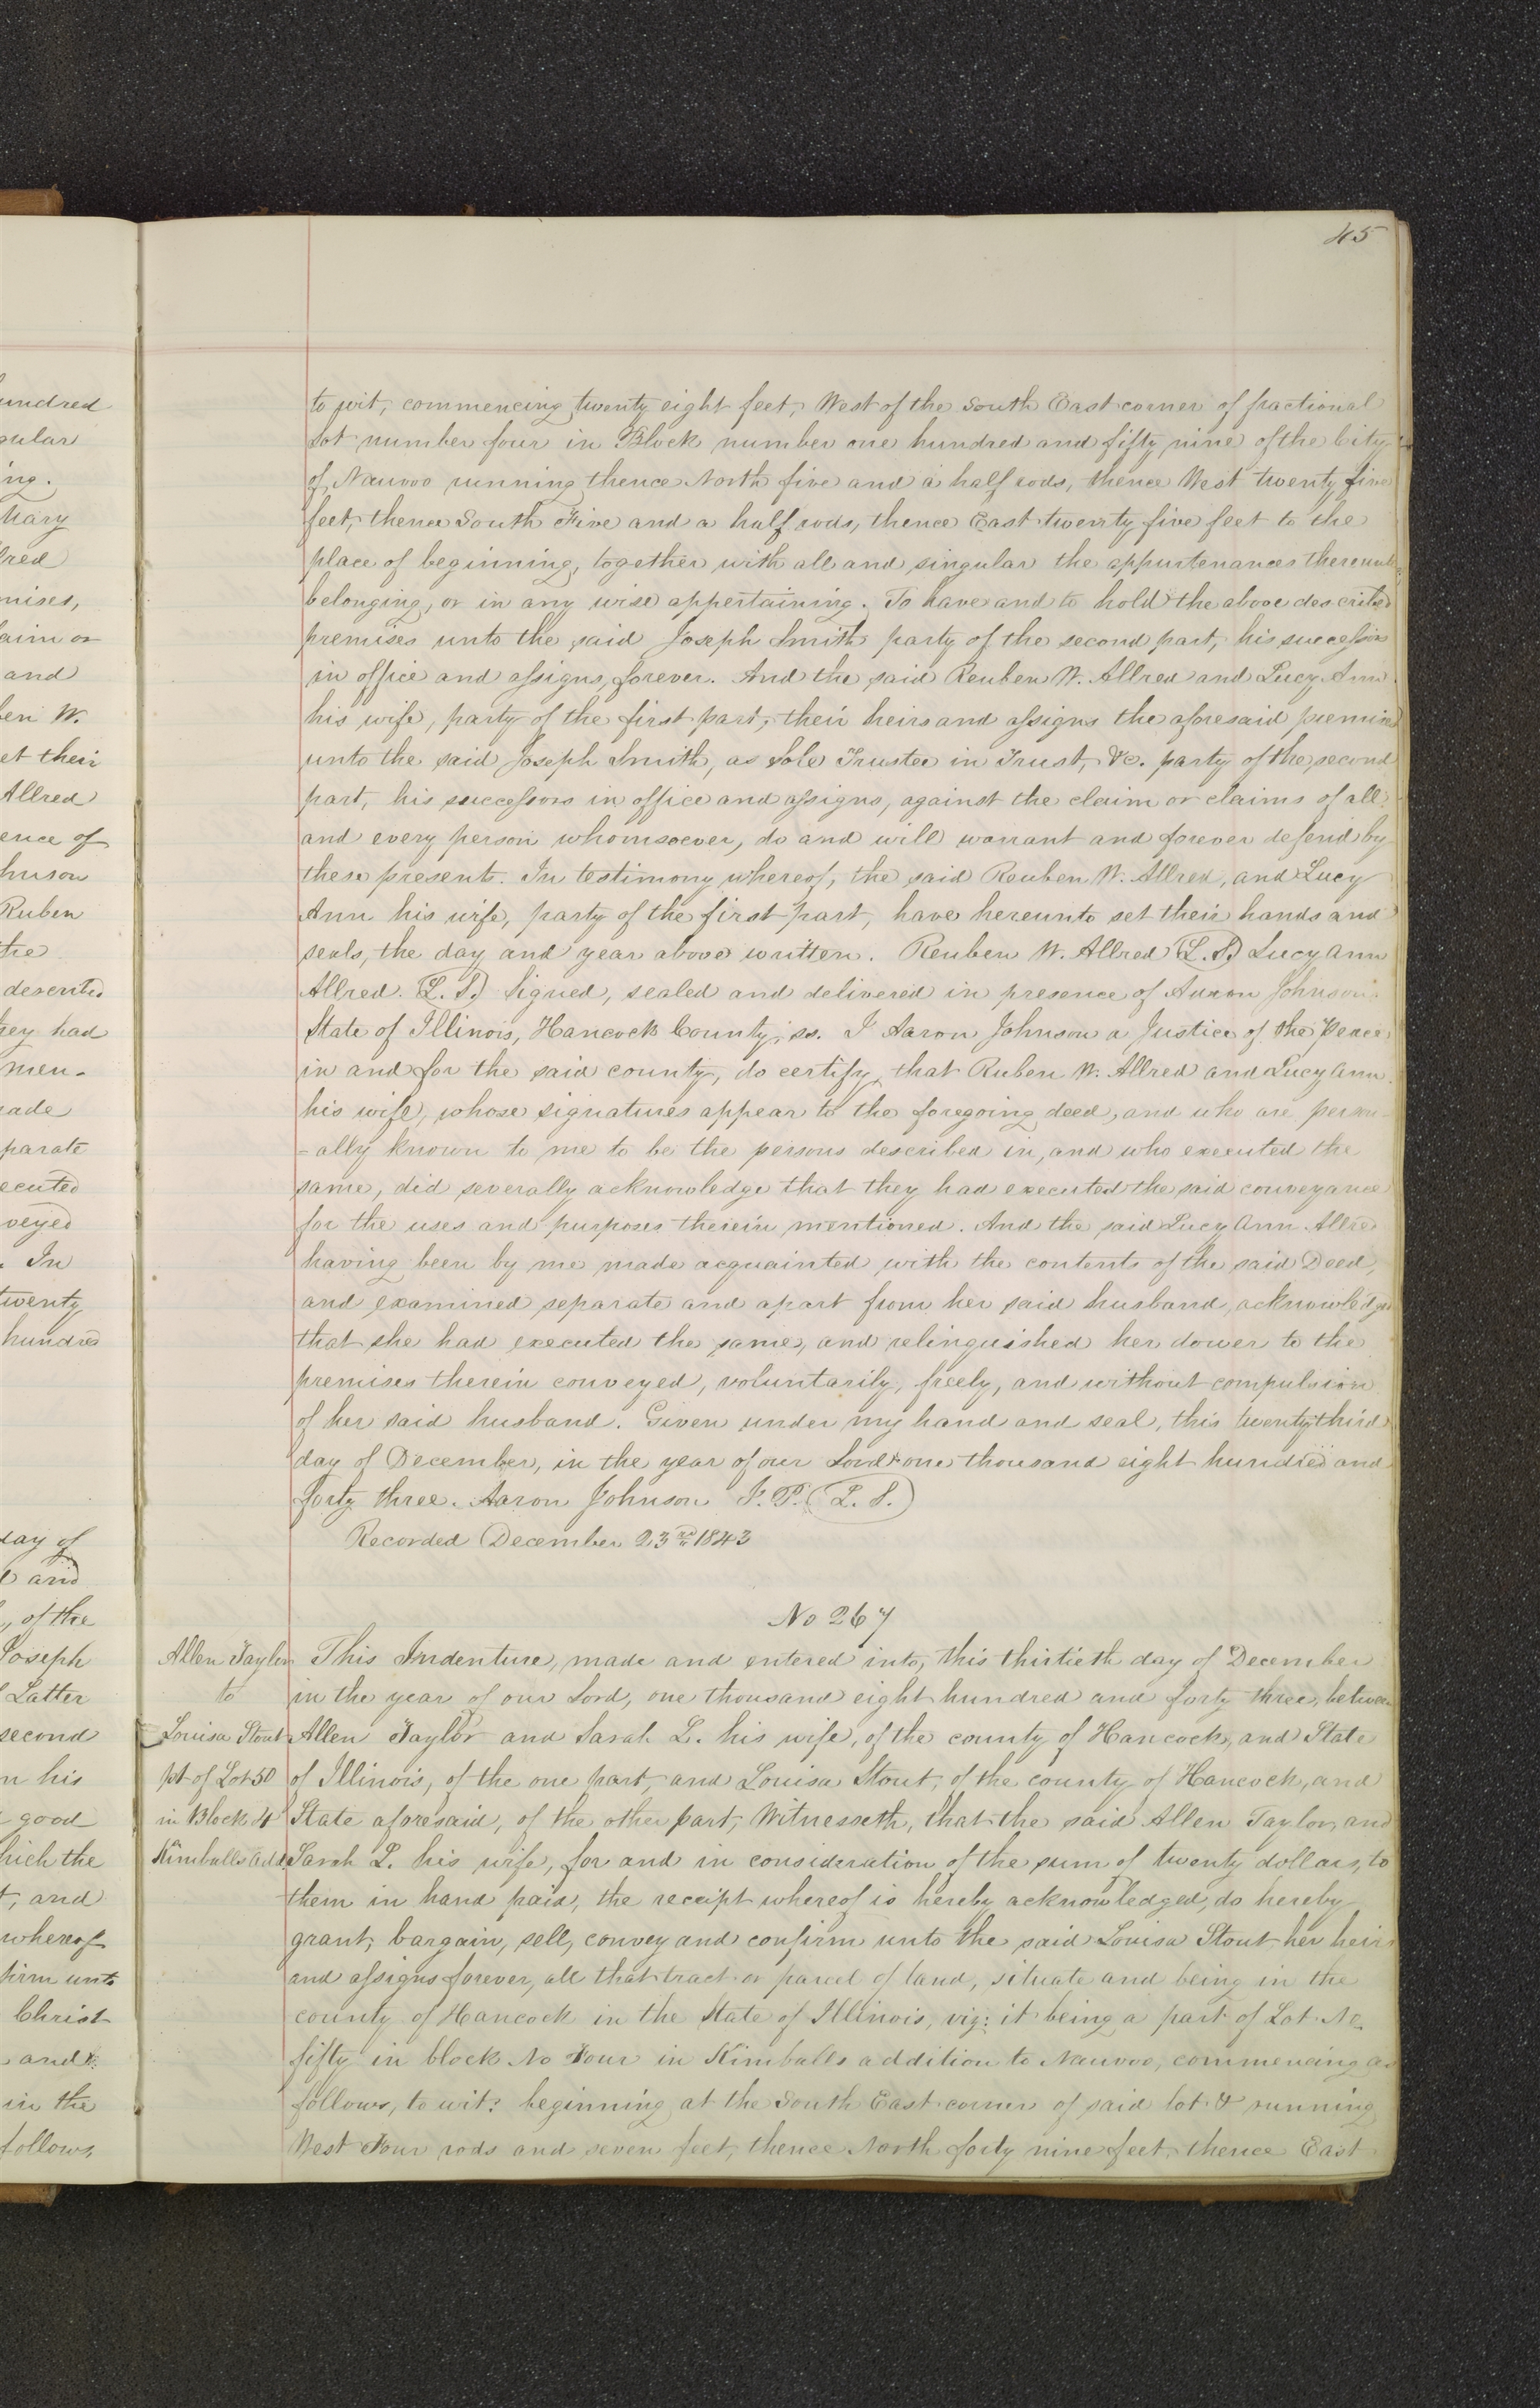 45
undred
gular
ing.
Mary
lred
mises,
laim or
and
ben W.
et their
Allred
ence of
hnson
Ruben
the
described
hey had
men-
made
parate
ecuted
veyed
. In
twenty
hundred
day of
and
, of the
Joseph
Latter
second
n his
good
hich the
t, and
whereof
firm unto
Christ
and
in the
follows,
to wit, commencing twenty eight feet, West of the South East corner of fractional
Lot number four in Block number one hundred and fifty nine of the City
of Nauvoo running thence North five and a half rods, thence West twenty five
feet, thence South Five and a half rods, thence East twenty five feet to the
place of beginning, together with all and singular the appurtenances thereunto
belonging, or in any wise appertaining. To have and to hold the above described
premises unto the said Joseph Smith party of the second part, his successors
in office and assigns, forever. And the said Reuben W. Allred and Lucy Ann
his wife, party of the first part, their heirs and assigns the aforesaid premises
unto the said Joseph Smith, as Sole Trustee in Trust, &c. party of the second
part, his successors in office and assigns, against the claim or claims of all
and every person whomsoever, do and will warrant and forever defend by
these presents. In testimony whereof, the said Reuben W. Allred, and Lucy
Ann his wife, party of the first part, have hereunto set their hands and
seals, the day and year above written. Reuben W. Allred (L. S.) Lucy Ann
Allred. (L. S.) Signed, sealed and delivered in presence of Aaron Johnson
State of Illinois, Hancock County, ss. I Aaron Johnson a Justice of the Peace
in and for the said county, do certify, that Ruben W. Allred and Lucy Ann
his wife, whose signatures appear to the foregoing deed, and who are person-
-ally known to me to be the persons described in, and who executed the
same, did severally acknowledge that they had executed the said conveyance
for the uses and purposes therein mentioned. And the said Lucy Ann Allred
having been by me made acquainted with the contents of the said Deed,
and examined separate and apart from her said husband, acknowledged
that she had executed the same, and relinquished her dower to the
premises therein conveyed, voluntarily, freely, and without compulsion
of her said husband. Given under my hand and seal, this twenty third
day of December, in the year of our Lord one thousand eight hundred and
forty three. Aaron Johnson J. P. (L. S.)
Recorded December 23rd 1843
No 267
Allen Taylor
to
Louisa Stout
pt of Lot 50
in Block 4
Kimballs Add.
This Indenture, made and entered into, this thirtieth day of December
in the year of our Lord, one thousand eight hundred and forty three, between
Allen Taylor and Sarah L. his wife, of the county of Hancock, and State
of Illinois, of the one part, and Louisa Stout, of the county of Hancock, and
State aforesaid, of the other part, Witnesseth, that the said Allen Taylor, and
Sarah L. his wife, for and in consideration of the sum of twenty dollars, to
them in hand paid, the receipt whereof is hereby acknowledged, do hereby
grant, bargain, sell, convey and confirm unto the said Louisa Stout her heirs
and assigns forever, all that tract or parcel of land, situate and being in the
county of Hancock in the State of Illinois, viz: it being a part of Lot No
fifty in block No Four in Kimballs addition to Nauvoo, commencing as
follows, to wit: beginning at the South East corner of said lot & running
West Four rods and seven feet, thence North forty nine feet, thence East